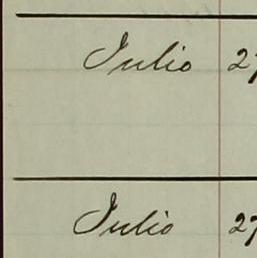 Julio 27
Julio 27